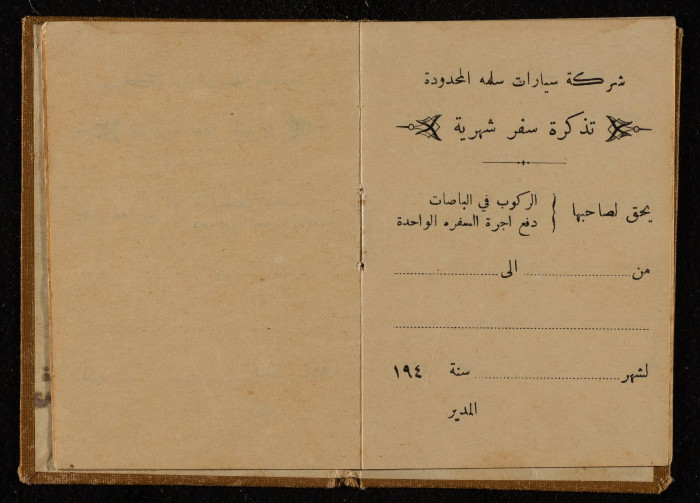 شركة سيارات سلمه المحدودة
تذكرة سفر شهرية
يحق لصاحبها { الركوب في الباصات
دفع اجرة السفره الواحدة
من ........................ الى ........................
................................................
لشهر ................................ سنة ١٩٤
المدير